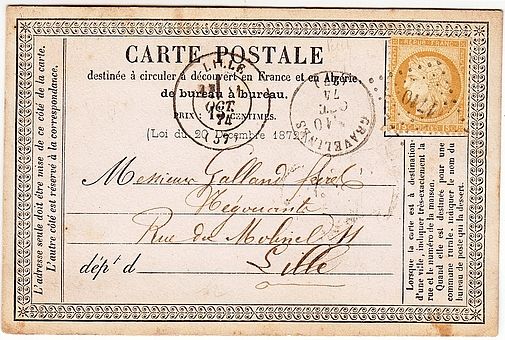 CARTE POSTALE
destinée à circuler à découvert en France et en Algérie,
de bureau à bureau.
PRIX : CENTIMES.
(Loi du 20 Décembre 1872)
LILLE
OCT.
74
(57)
GRAVELINES
OCT.
74
REPUB. FRANC.
L'adresse seule doit être mise de ce côté de la carte.
L'autre côté est réservé à la correspondance.
Messieurs Galland
Négociants
Rue du Molinel 11
dépt d Lille
Lorsque la carte est à destination
d'une ville, indiquer très-exactement la
rue et le numéro de la maison.
Quand elle est destinée pour une
commune rurale, indiquer le nom du
bureau de poste qui la dessert.